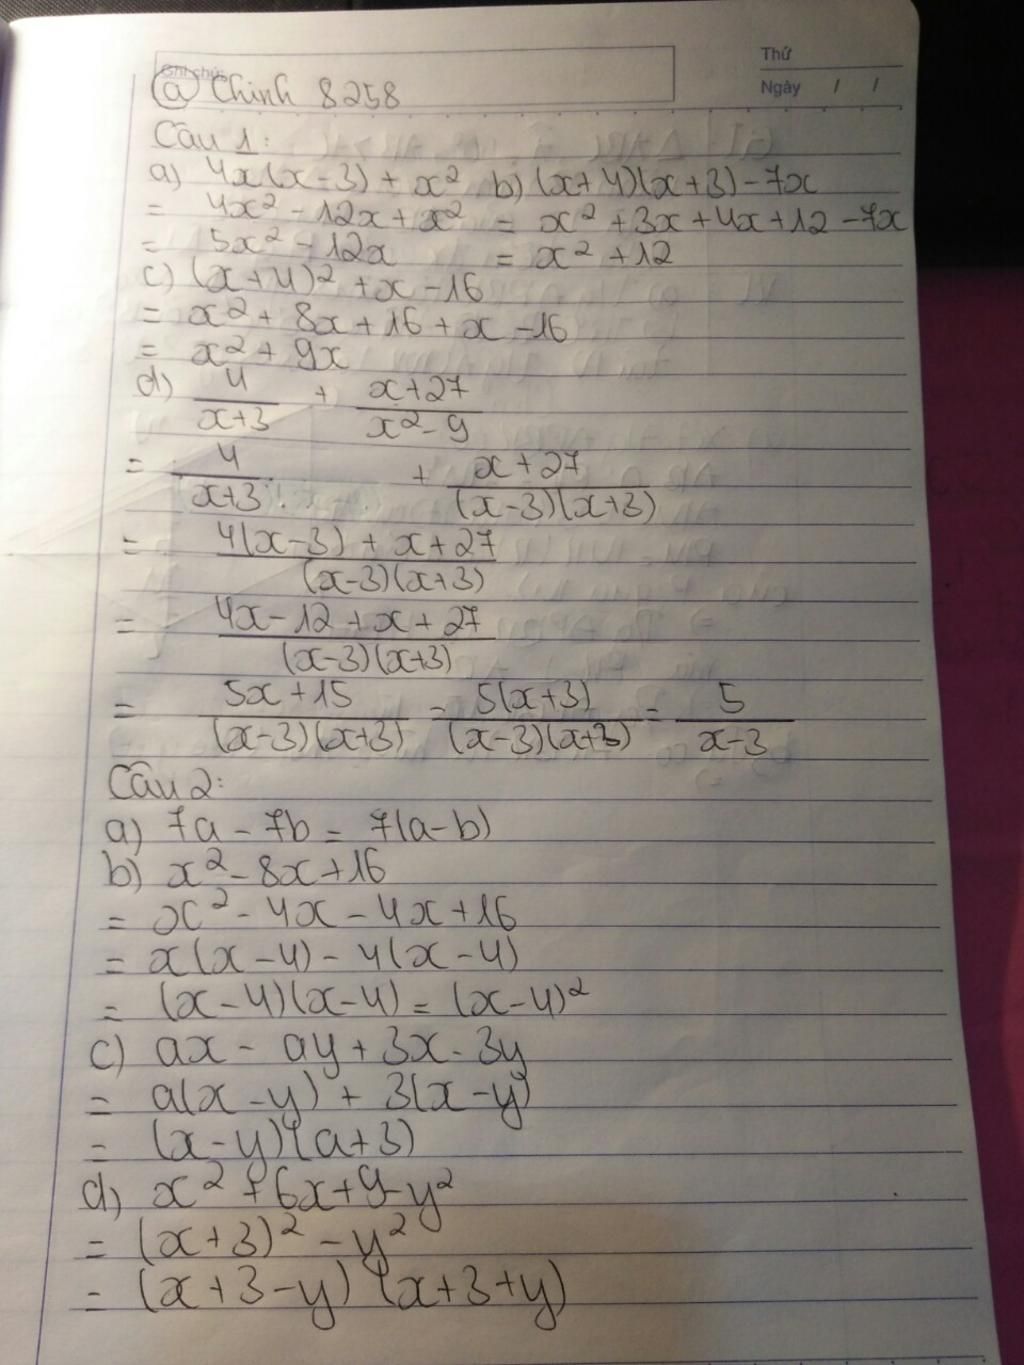 Thứ
Ghi chú:
Ngày / /
@ Chinh 8258
Câu 1:
a) 4x(x-3) + x² b) (x+4)(x+3) - 7x
= 4x² - 12x + x² = x² + 3x + 4x + 12 - 7x
= 5x² - 12x = x² + 12
c) (x+4)² + x - 16
= x² + 8x + 16 + x - 16
= x² + 9x
d) 4/(x+3) + (x+27)/(x²-9)
= 4/(x+3) + (x+27)/((x-3)(x+3))
= (4(x-3) + x + 27)/((x-3)(x+3))
= (4x - 12 + x + 27)/((x-3)(x+3))
= (5x + 15)/((x-3)(x+3)) = 5(x+3)/((x-3)(x+3)) = 5/(x-3)
Câu 2:
a) 7a - 7b = 7(a-b)
b) x² - 8x + 16
= x² - 4x - 4x + 16
= x(x-4) - 4(x-4)
= (x-4)(x-4) = (x-4)²
c) ax - ay + 3x - 3y
= a(x-y) + 3(x-y)
= (x-y)(a+3)
d) x² + 6x + 9 - y²
= (x+3)² - y²
= (x+3-y)(x+3+y)